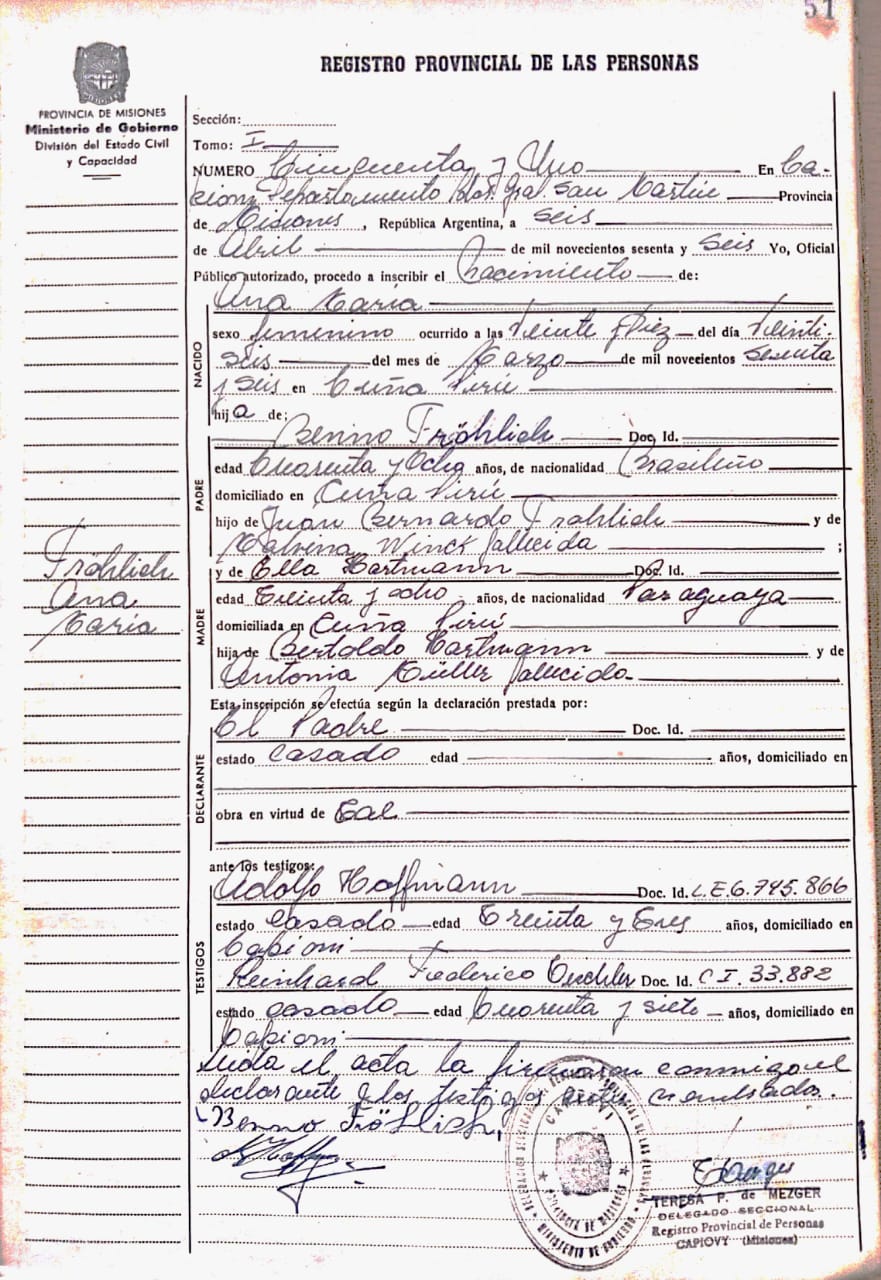 51
REGISTRO PROVINCIAL DE LAS PERSONAS
PROVINCIA DE MISIONES
Ministerio de Gobierno
División del Estado Civil
y Capacidad
Sección:
Tomo: I
NUMERO Cincuenta y Uno En Ca-
Departamento Lib. Gral. San Martin Provincia
de Misiones, República Argentina, a seis
de Abril de mil novecientos sesenta y seis Yo, Oficial
Público autorizado, procedo a inscribir el Nacimiento de:
NACIDO
Ana Maria
sexo femenino ocurrido a las Veinte y Diez del día Veinti-
seis del mes de Marzo de mil novecientos sesenta
y seis en Cuña Pirú
hija de;
PADRE
Benno Fröhlich Doc. Id.
edad Cuarenta y Ocho años, de nacionalidad Brasileño
domiciliado en Cuña Pirú
hijo de Juan Bernardo Frohlich y de
Malvina Winck fallecida ;
Fröhlich
Ana
Maria
MADRE
y de Ella Hartmann Doc. Id.
edad Treinta y ocho años, de nacionalidad Paraguaya
domiciliada en Cuña Pirú
hija de Bertoldo Hartmann y de
Antonia Müller fallecida
Esta inscripción se efectúa según la declaración prestada por:
DECLARANTE
El Padre Doc. Id.
estado Casado edad años, domiciliado en
obra en virtud de Tal
ante los testigos:
TESTIGOS
Adolfo Hoffmann Doc. Id. L.E 6.745.866
estado Casado edad Treinta y Tres años, domiciliado en
Capioni
Reinhard Federico Doc. Id. C I. 33.882
estado casado edad Cuarenta y siete años, domiciliado en
Capioni
Leida el acta la firmaron conmigo el
declarante y los testigos
Benno Fröhlich,
CAPIOVI
PROVINCIA DE MISIONES
MINISTERIO DE GOBIERNO
TERESA P. de MEZGER
DELEGADO SECCIONAL
Registro Provincial de Personas
CAPIOVY (Misiones)